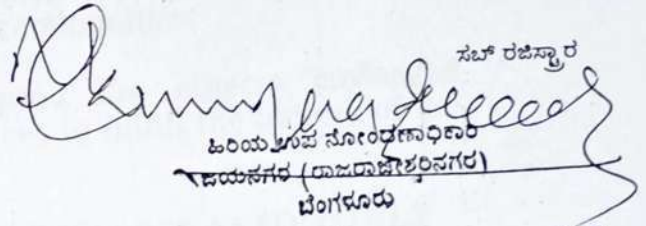 ಸಬ್ ರಜಿಸ್ಟ್ರಾರ
ಹಿರಿಯ ಉಪ ನೋಂದಣಾಧಿಕಾರಿ
ಜಯನಗರ (ರಾಜರಾಜೇಶ್ವರಿನಗರ)
ಬೆಂಗಳೂರು